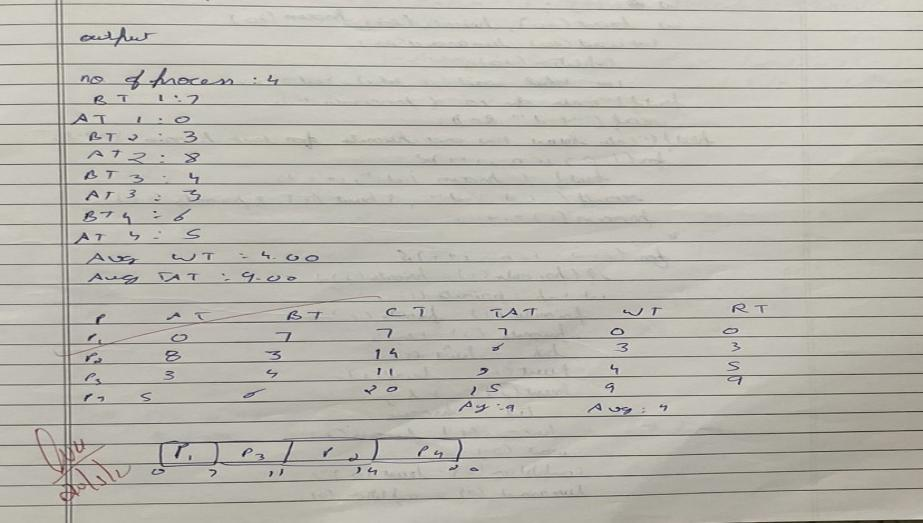 output
no of process : 4
BT 1 : 7
AT 1 : 0
BT 2 : 3
AT 2 : 8
BT 3 : 4
AT 3 : 3
BT 4 : 6
AT 4 : 5
Avg WT : 4.00
Avg TAT : 9.00
P AT BT CT TAT WT RT
P1 0 7 7 7 0 0
P2 8 3 14 6 3 3
P3 3 4 11 4 5
5 6 20 15 9 9
Avg : 9 Avg : 4
P1 P3 P2 P4
0 7 11 14 20